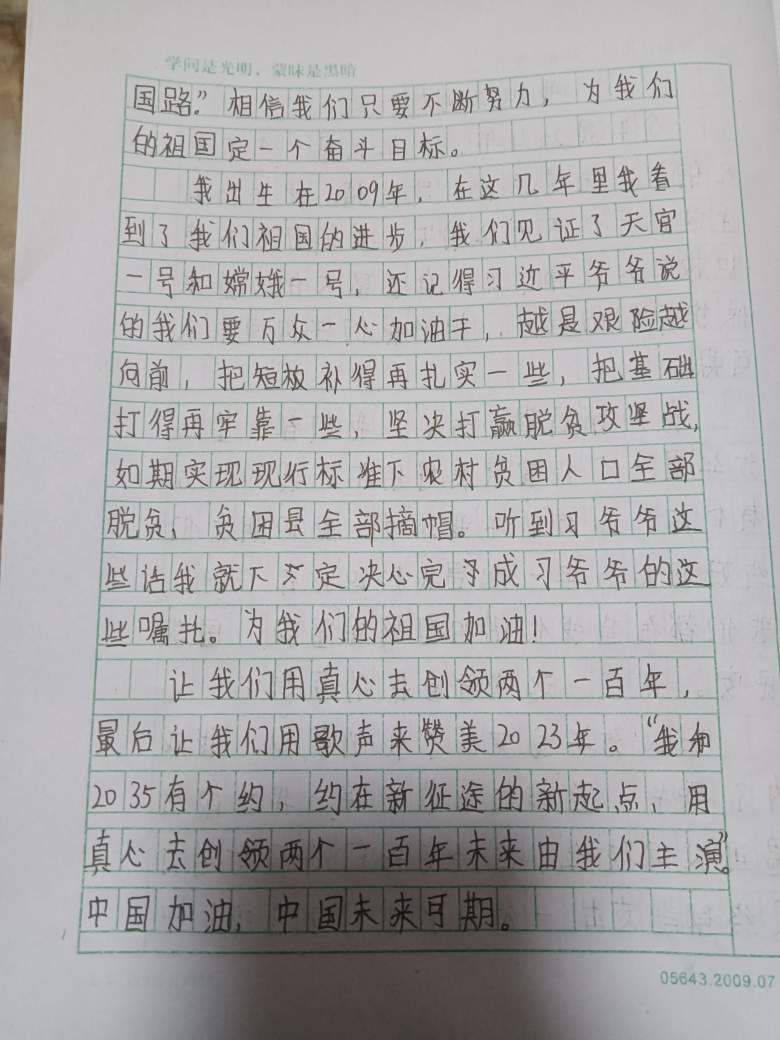 学问是光明，蒙昧是黑暗
国路。”相信我们只要不断努力，为我们
的祖国定一个奋斗目标。
我出生在2009年，在这几年里我看
到了我们祖国的进步，我们见证了天宫
一号和嫦娥一号，还记得习近平爷爷说
的我们要万众一心加油干，越是艰险越
向前，把短板补得再扎实一些，把基础
打得再牢靠一些，坚决打赢脱贫攻坚战，
如期实现现行标准下农村贫困人口全部
脱贫，贫困县全部摘帽。听到习爷爷这
些话我就下定决心完成习爷爷的这
些嘱扎。为我们的祖国加油！
让我们用真心去创领两个一百年，
最后让我们用歌声来赞美2023年。“我和
2035有个约，约在新征途的新起点，用
真心去创领两个一百年未来由我们主演”。
中国加油，中国未来可期。
05643.2009.07